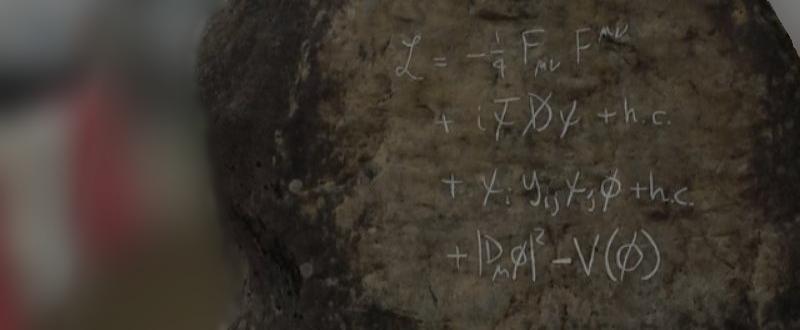 ℒ = -¼ F_μν F^μν
+ iψ̄D̸ψ + h.c.
+ ψ_i y_ij ψ_j φ + h.c.
+ |D_μ φ|² - V(φ)